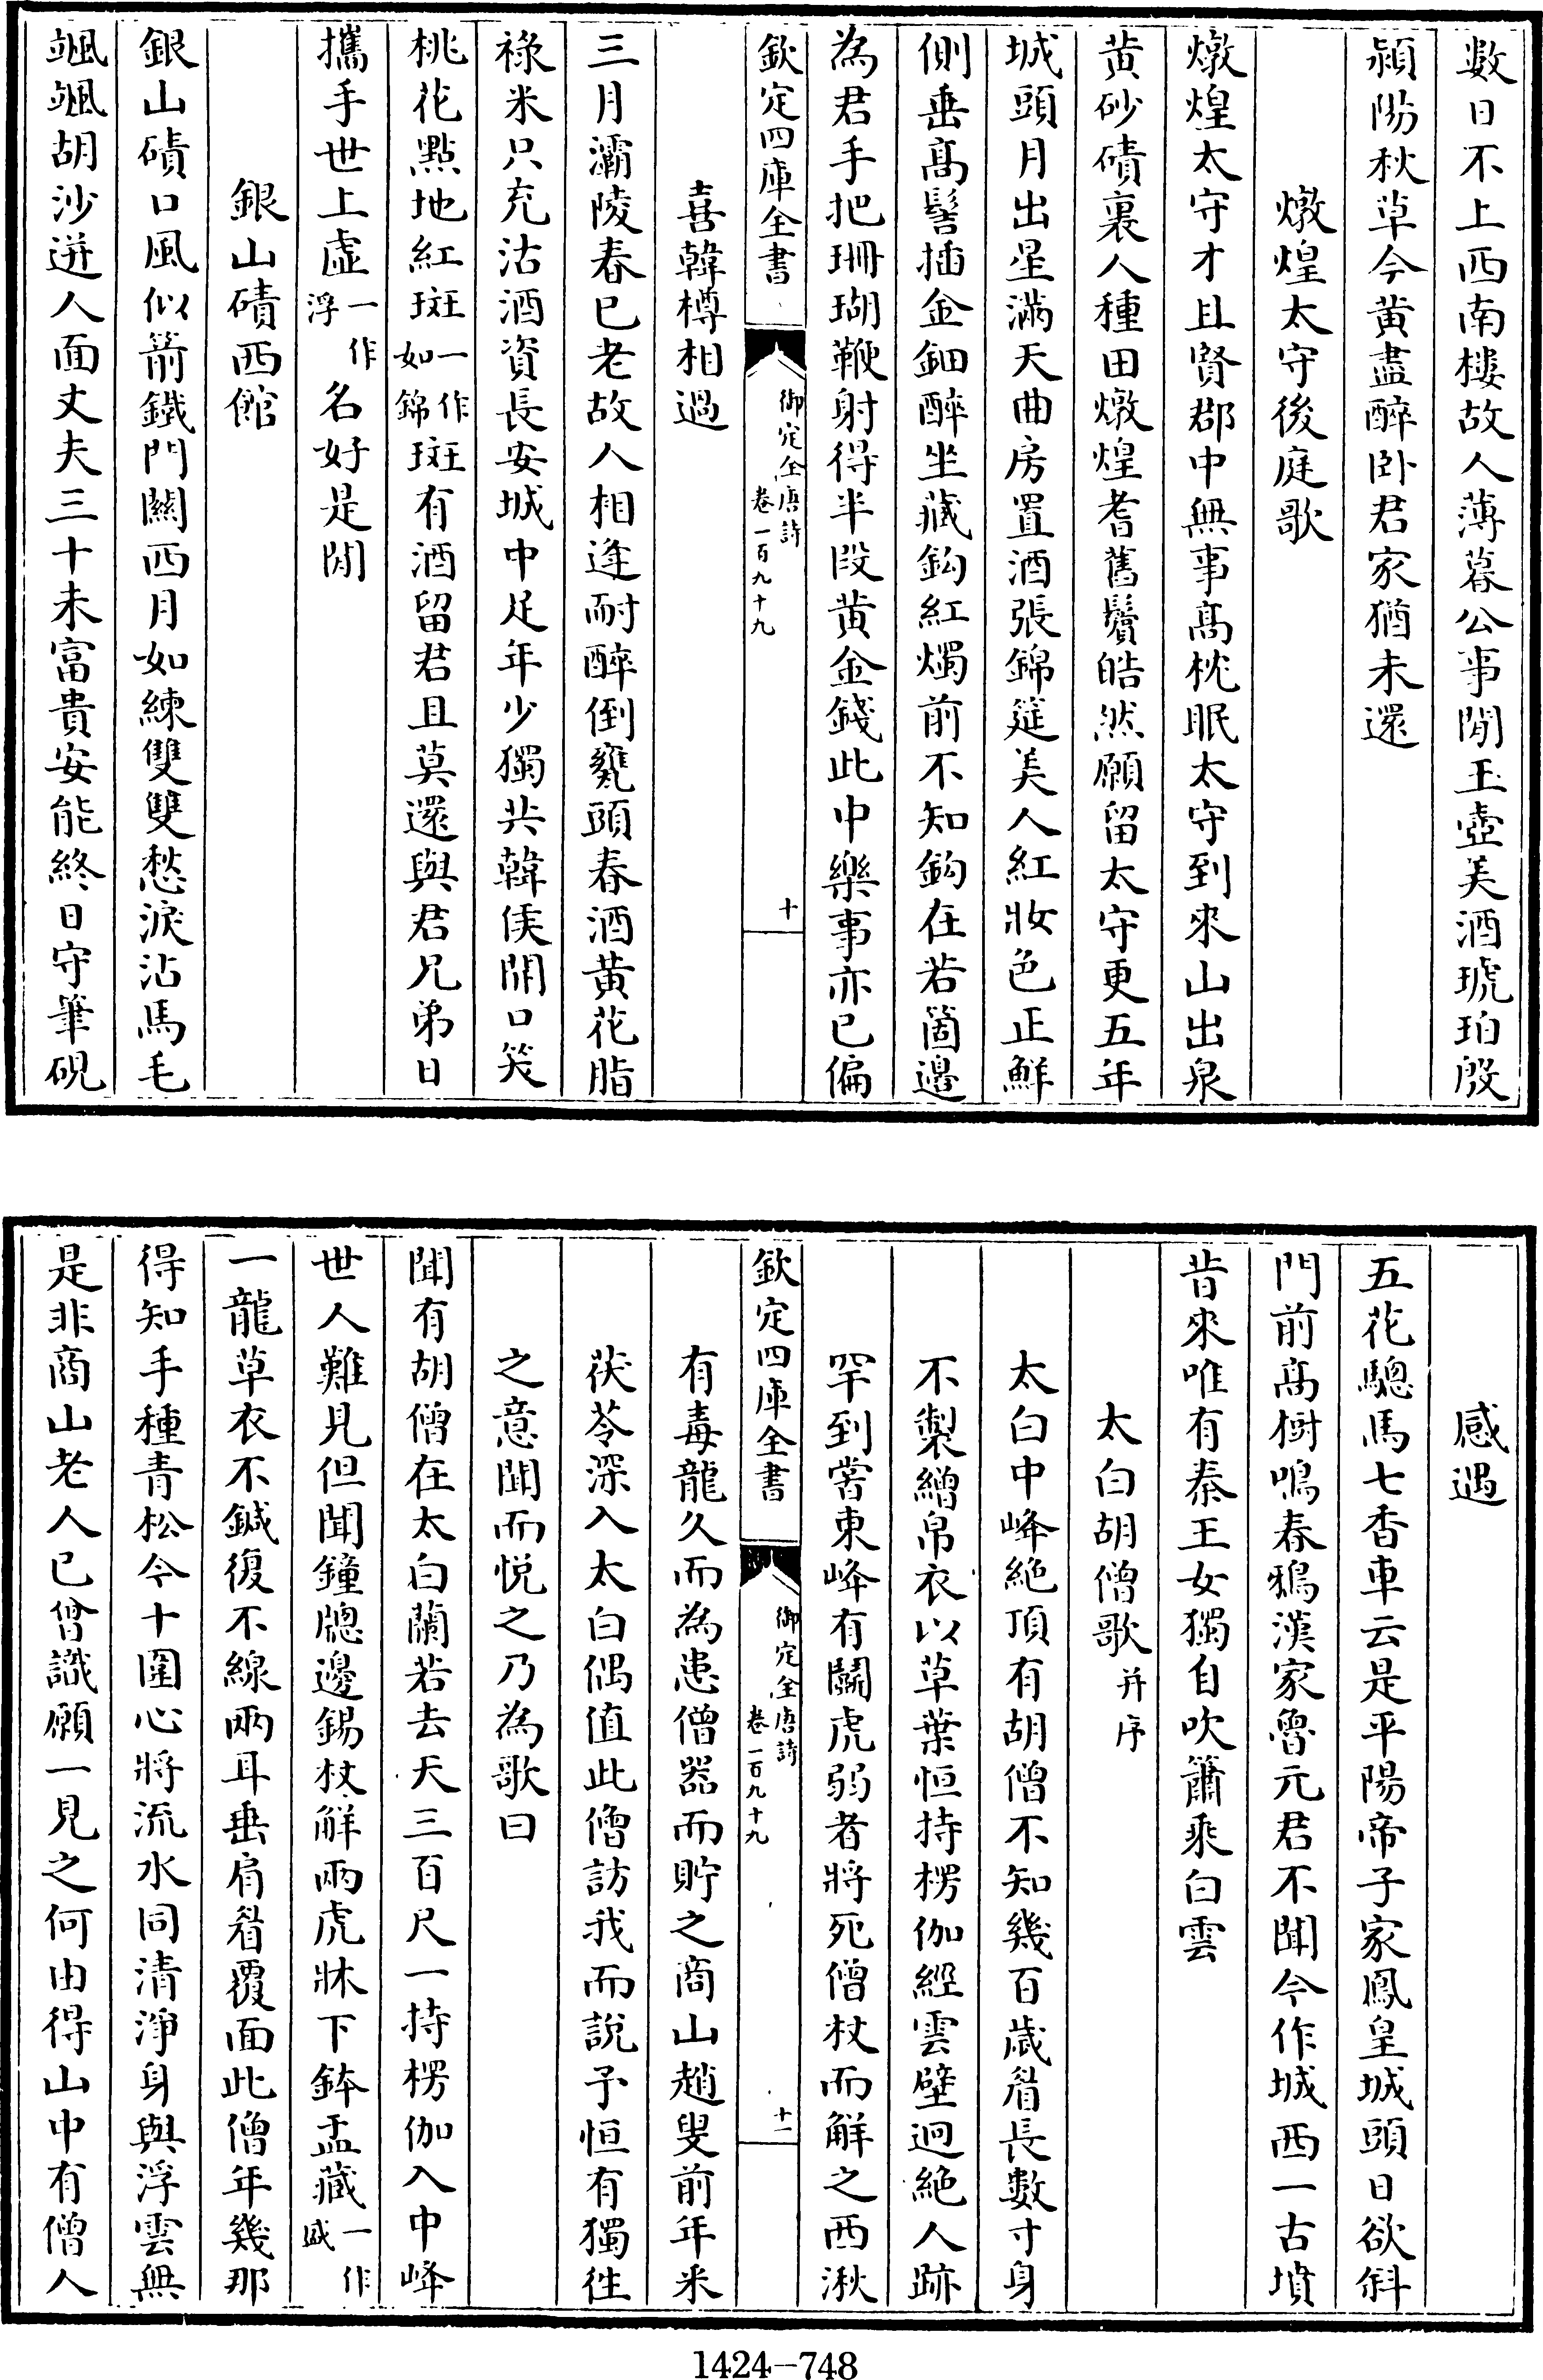 數日不上西南樓故人薄暮公事閒玉壺美酒琥珀殷
潁陽秋草今黄盡醉卧君家猶未還
燉煌太守後庭歌
燉煌太守才且賢郡中無事髙枕眠太守到來山出泉
黄砂磧裏人種田燉煌耆舊鬢皓然願留太守更五年
城頭月出星滿天曲房置酒張錦筵美人紅妝色正鮮
側垂髙髻插金鈿醉坐藏鈎紅燭前不知鈎在若箇邊
為君手把珊瑚鞭射得半段黄金錢此中樂事亦已偏
欽定四庫全書 御定全唐詩 卷一百九十九 十
喜韓樽相過
三月灞陵春已老故人相逢耐醉倒甕頭春酒黄花脂
祿米只充沽酒資長安城中足年少獨共韓侯開口笑
桃花點地紅斑一作如錦斑有酒留君且莫還與君兄弟日
攜手世上虛一作浮名好是閒
銀山磧西館
銀山磧口風似箭鐵門關西月如練雙雙愁淚沾馬毛
颯颯胡沙迸人面丈夫三十未富貴安能終日守筆硯
感遇
五花驄馬七香車云是平陽帝子家鳳皇城頭日欲斜
門前髙樹鳴春鴉漢家魯元君不聞今作城西一古墳
昔來唯有秦王女獨自吹簫乘白雲
太白胡僧歌并序
太白中峰絶頂有胡僧不知幾百歲眉長數寸身
不製繒帛衣以草葉恒持楞伽經雲壁迥絶人跡
罕到嘗東峰有鬭虎弱者將死僧杖而解之西湫
欽定四庫全書 御定全唐詩 卷一百九十九 十一
有毒龍久而為患僧器而貯之商山趙叟前年米
茯苓深入太白偶值此僧訪我而說予恒有獨往
之意聞而悦之乃為歌曰
聞有胡僧在太白蘭若去天三百尺一持楞伽入中峰
世人難見但聞鐘牕邊錫杖解兩虎牀下鉢盂藏一作盛
一龍草衣不鍼復不線兩耳垂肩眉覆面此僧年幾那
得知手種青松今十圍心將流水同清淨身與浮雲無
是非商山老人已曾識願一見之何由得山中有僧人
1424-748